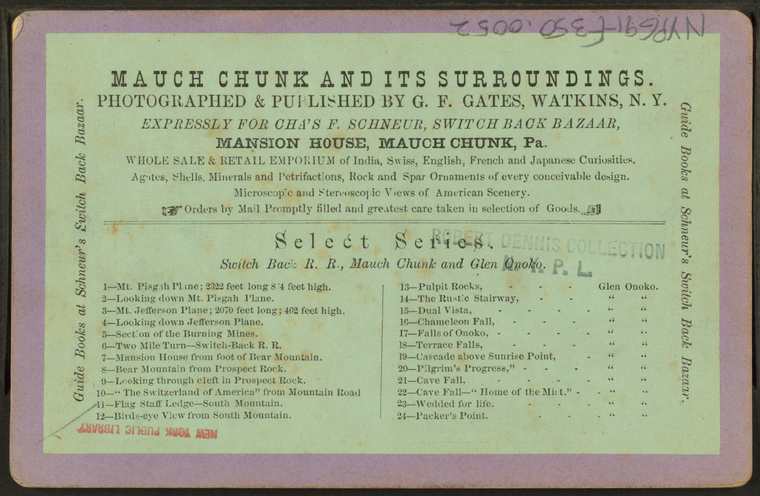 NYPG91-F350.0052
MAUCH CHUNK AND ITS SURROUNDINGS.
PHOTOGRAPHED & PUBLISHED BY G. F. GATES, WATKINS, N. Y.
EXPRESSLY FOR CHA'S F. SCHNEUR, SWITCH BACK BAZAAR,
MANSION HOUSE, MAUCH CHUNK, Pa.
WHOLE SALE & RETAIL EMPORIUM of India, Swiss, English, French and Japanese Curiosities.
Agates, Shells, Minerals and Petrifactions, Rock and Spar Ornaments of every conceivable design.
Microscopic and Stereoscopic Views of American Scenery.
☞ Orders by Mail Promptly filled and greatest care taken in selection of Goods. ☜
Select Series.
ROBERT DENNIS COLLECTION
Switch Back R. R., Mauch Chunk and Glen Onoko.
N. Y. P. L.
1—Mt. Pisgah Plane; 2322 feet long 8 4 feet high.
2—Looking down Mt. Pisgah Plane.
3—Mt. Jefferson Plane; 2070 feet long; 462 feet high.
4—Looking down Jefferson Plane.
5—Section of the Burning Mines.
6—Two Mile Turn—Switch-Back R. R.
7—Mansion House from foot of Bear Mountain.
8—Bear Mountain from Prospect Rock.
9—Looking through cleft in Prospect Rock.
10—"The Switzerland of America" from Mountain Road
11—Flag Staff Ledge—South Mountain.
12—Birds-eye View from South Mountain.
13—Pulpit Rocks, - - - Glen Onoko.
14—The Rustic Stairway, - - " "
15—Dual Vista, - - - - - " "
16—Chameleon Fall, - - - - " "
17—Falls of Onoko, - - - - " "
18—Terrace Falls, - - - - " "
19—Cascade above Sunrise Point, - - " "
20—Pilgrim's Progress," - - - " "
21—Cave Fall, - - - - - " "
22—Cave Fall—"Home of the Mist." - - " "
23—Wedded for life. - - - - " "
24—Packer's Point. - - - - " "
Guide Books at Schneur's Switch Back Bazaar.
Guide Books at Schneur's Switch Back Bazaar.
NEW YORK PUBLIC LIBRARY